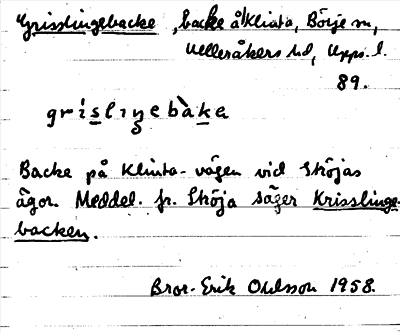 Grisslingebacke, backe å Klinta, Börje sn,
Ulleråkers hd, Upps. l.
89.
gríslıŋebàka
Backe på Klinta-vägen vid Ströjas
ägor. Meddel. fr. Ströja säger Krisslinge-
backen.
Bror-Erik Ohlsson 1958.